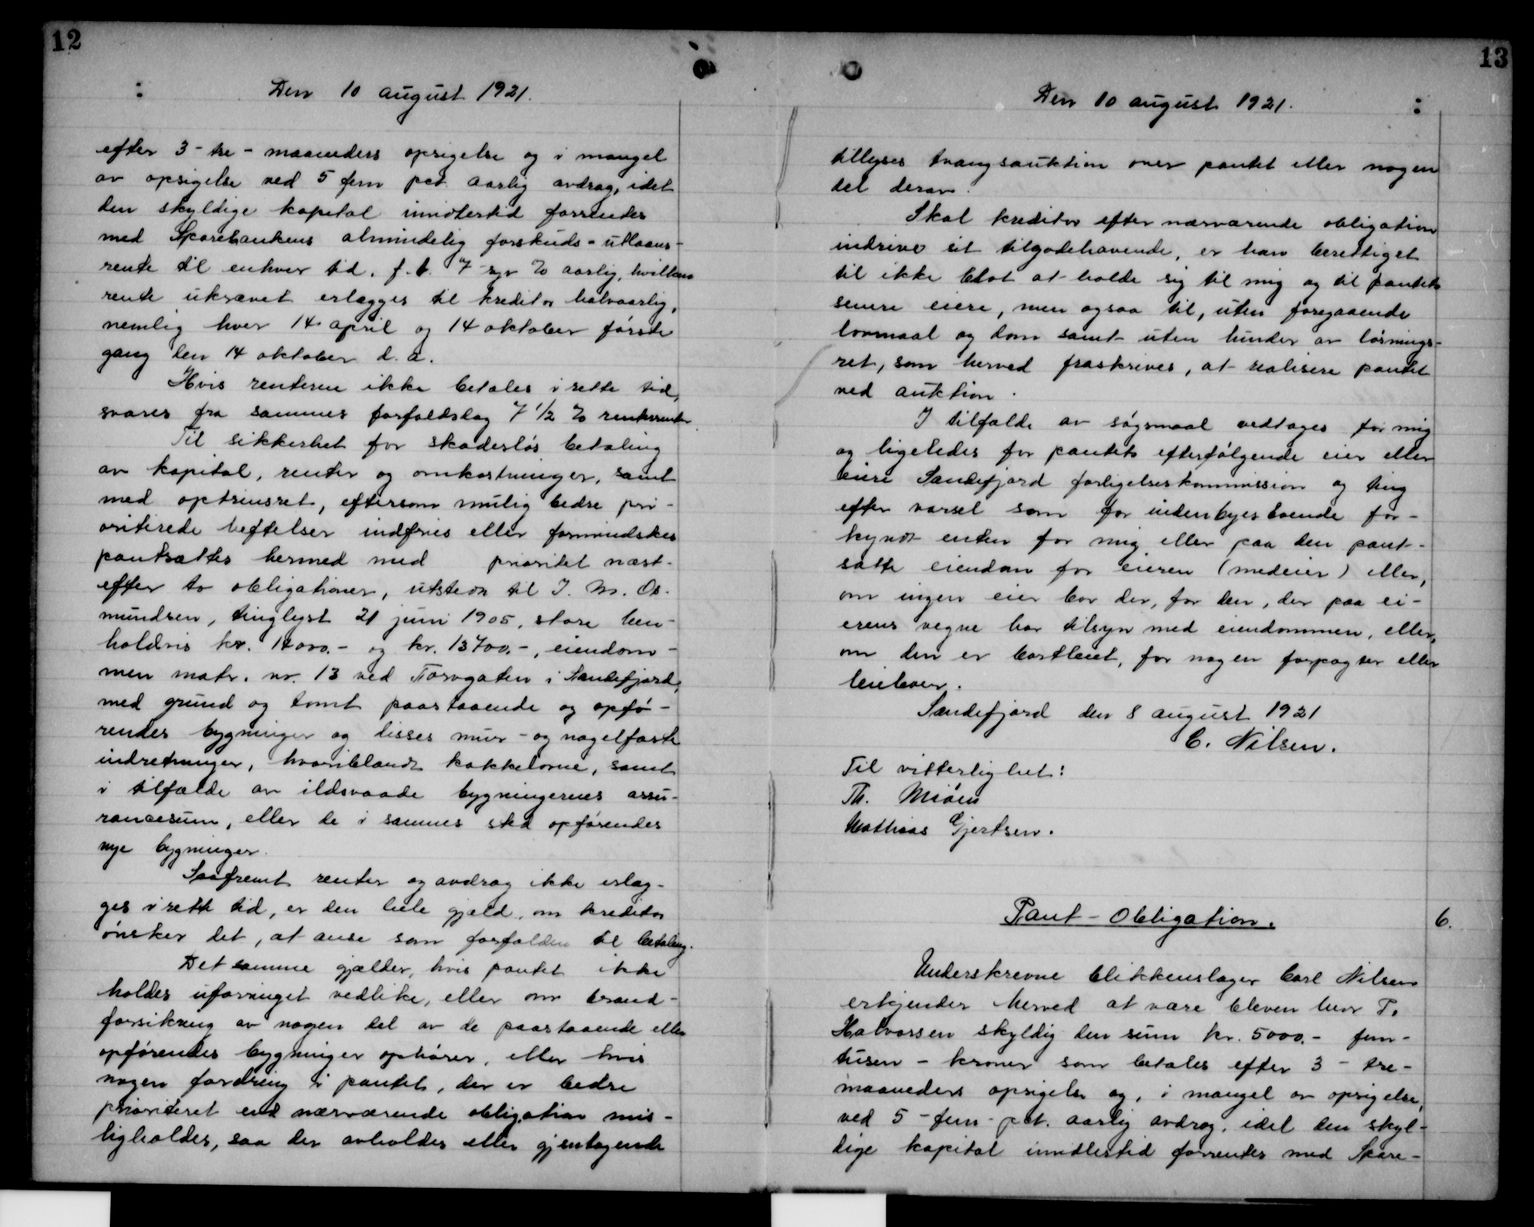 12
Den 10 august 1921.
efter 3 - tre - maaneders opsigelse og i mangel
av opsigelse ved 5 fem pct. aarlig avdrag, idet
den skyldige kapital imidlertid forrendes
med Sparebankens almindelig forskuds - utlaans-
rente til enhver tid, f. t. 7 syv % aarlig, hvilken
rente ukrævet erlægges til kreditor halvaarlig,
nemlig hver 14 april og 14 oktober første
gang den 14 oktober d. a.
Hvis renterne ikke betales i rette tid,
svares fra sammes forfaldsdag 7 1/2 % rentersrente.
Til sikkerhet for skadesløs betaling
av kapital, renter og omkostninger, samt
med optrinsret, eftersom mulig bedre pri-
oriterede heftelser indfries eller formindskes
pantsættes hermed med prioritet næst-
efter to obligationer, utstedt til I. M. Os-
mundsen, tinglyst 21 juni 1905, store hen-
holdsvis kr. 14000.- og kr. 13700.-, eiendom-
men matr. nr. 13 ved Torvgaten i Sandefjord,
med grund og tomt paastaaende og opfø-
rendes bygninger og disses mur - og nagelfaste
indretninger, hvoriblandt kakkelovne, samt
i tilfælde av ildsvaade bygningernes assu-
rancesum, eller de i sammes sted opførendes
nye bygninger.
Saafremt renter og avdrag ikke erlæg-
ges i rette tid, er den hele gjæld, om kreditor
ønsker det, at anse som forfalden til betaling.
Det samme gjælder, hvis pantet ikke
holdes uforringet vedlike, eller om brand-
forsikring av nogen del av de paastaaende eller
opførendes bygninger ophører, eller hvis
nogen fordring i pantet, der er bedre
prioriteret end nærværende obligation mis-
ligholdes, saa der avholdes eller gjentagende
13
Den 10 august 1921.
tillyses tvangsauktion over pantet eller nogen
del derav.
Skal kreditor efter nærværende obligation
indrive sit tilgodehavende, er han berettiget
til ikke blot at holde sig til mig og til pantets
senere eiere, men ogsaa til, uten foregaaende
lovmaal og dom samt uten hinder av løsnings-
ret, som herved fraskrives, at realisere pantet
ved auktion.
I tilfælde av søgsmaal vedtages for mig
og ligeledes for pantets efterfølgende eier eller
eiere Sandefjord forligelseskommission og ting
efter varsel som for indenbyes boende for-
kyndt enten for mig eller paa den pant-
satte eiendom for eieren (medeier) eller,
om ingen eier bor der, for den, der paa ei-
erens vegne har tilsyn med eiendommen, eller,
om den er bortleiet, for nogen forpagter eller
leieboer.
Sandefjord den 8 august 1921
C. Nilsen.
Til vitterlighet:
Th. Moien
Mathias Gjertsen.
Pant - Obligation. 6.
Underskrevne blikkenslager Carl Nilsen
erkjender herved at være bleven herr T.
Halvorsen skyldig den sum kr. 5000.- fem-
tusen - kroner som betales efter 3 - tre -
maaneders opsigelse og, i mangel av opsigelse,
ved 5 - fem - pct. aarlig avdrag, idet den skyl-
dige kapital imidlertid forrentes med Spare-